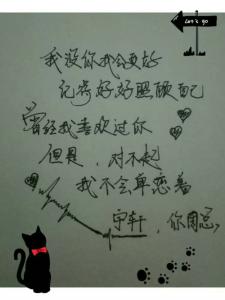 Let's go
我没你我会更好
记得好好照顾自己
曾经我喜欢过你
但是，对不起
我不会单恋着
宇轩，你